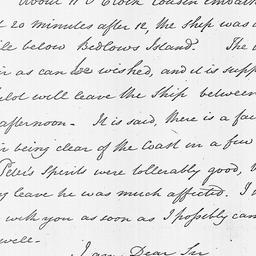 About 11 O Clock Cousin embark
t 20 minutes after 12, the Ship was a
ile below Bedlows Island. The
ir as can be wished, and it is supp
ilot will leave the Ship between
afternoon - It is said, there is a fai
r being clear of the Coast in a few
Peter's Spirits were tollerably good,
leave he was much affected. I w
with you as soon as I possibly can
well -
I am Dear Sir